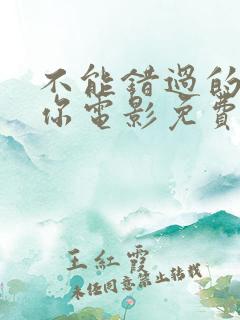 不能錯過的
你電影免費
王紅霞
未经同意禁止转载